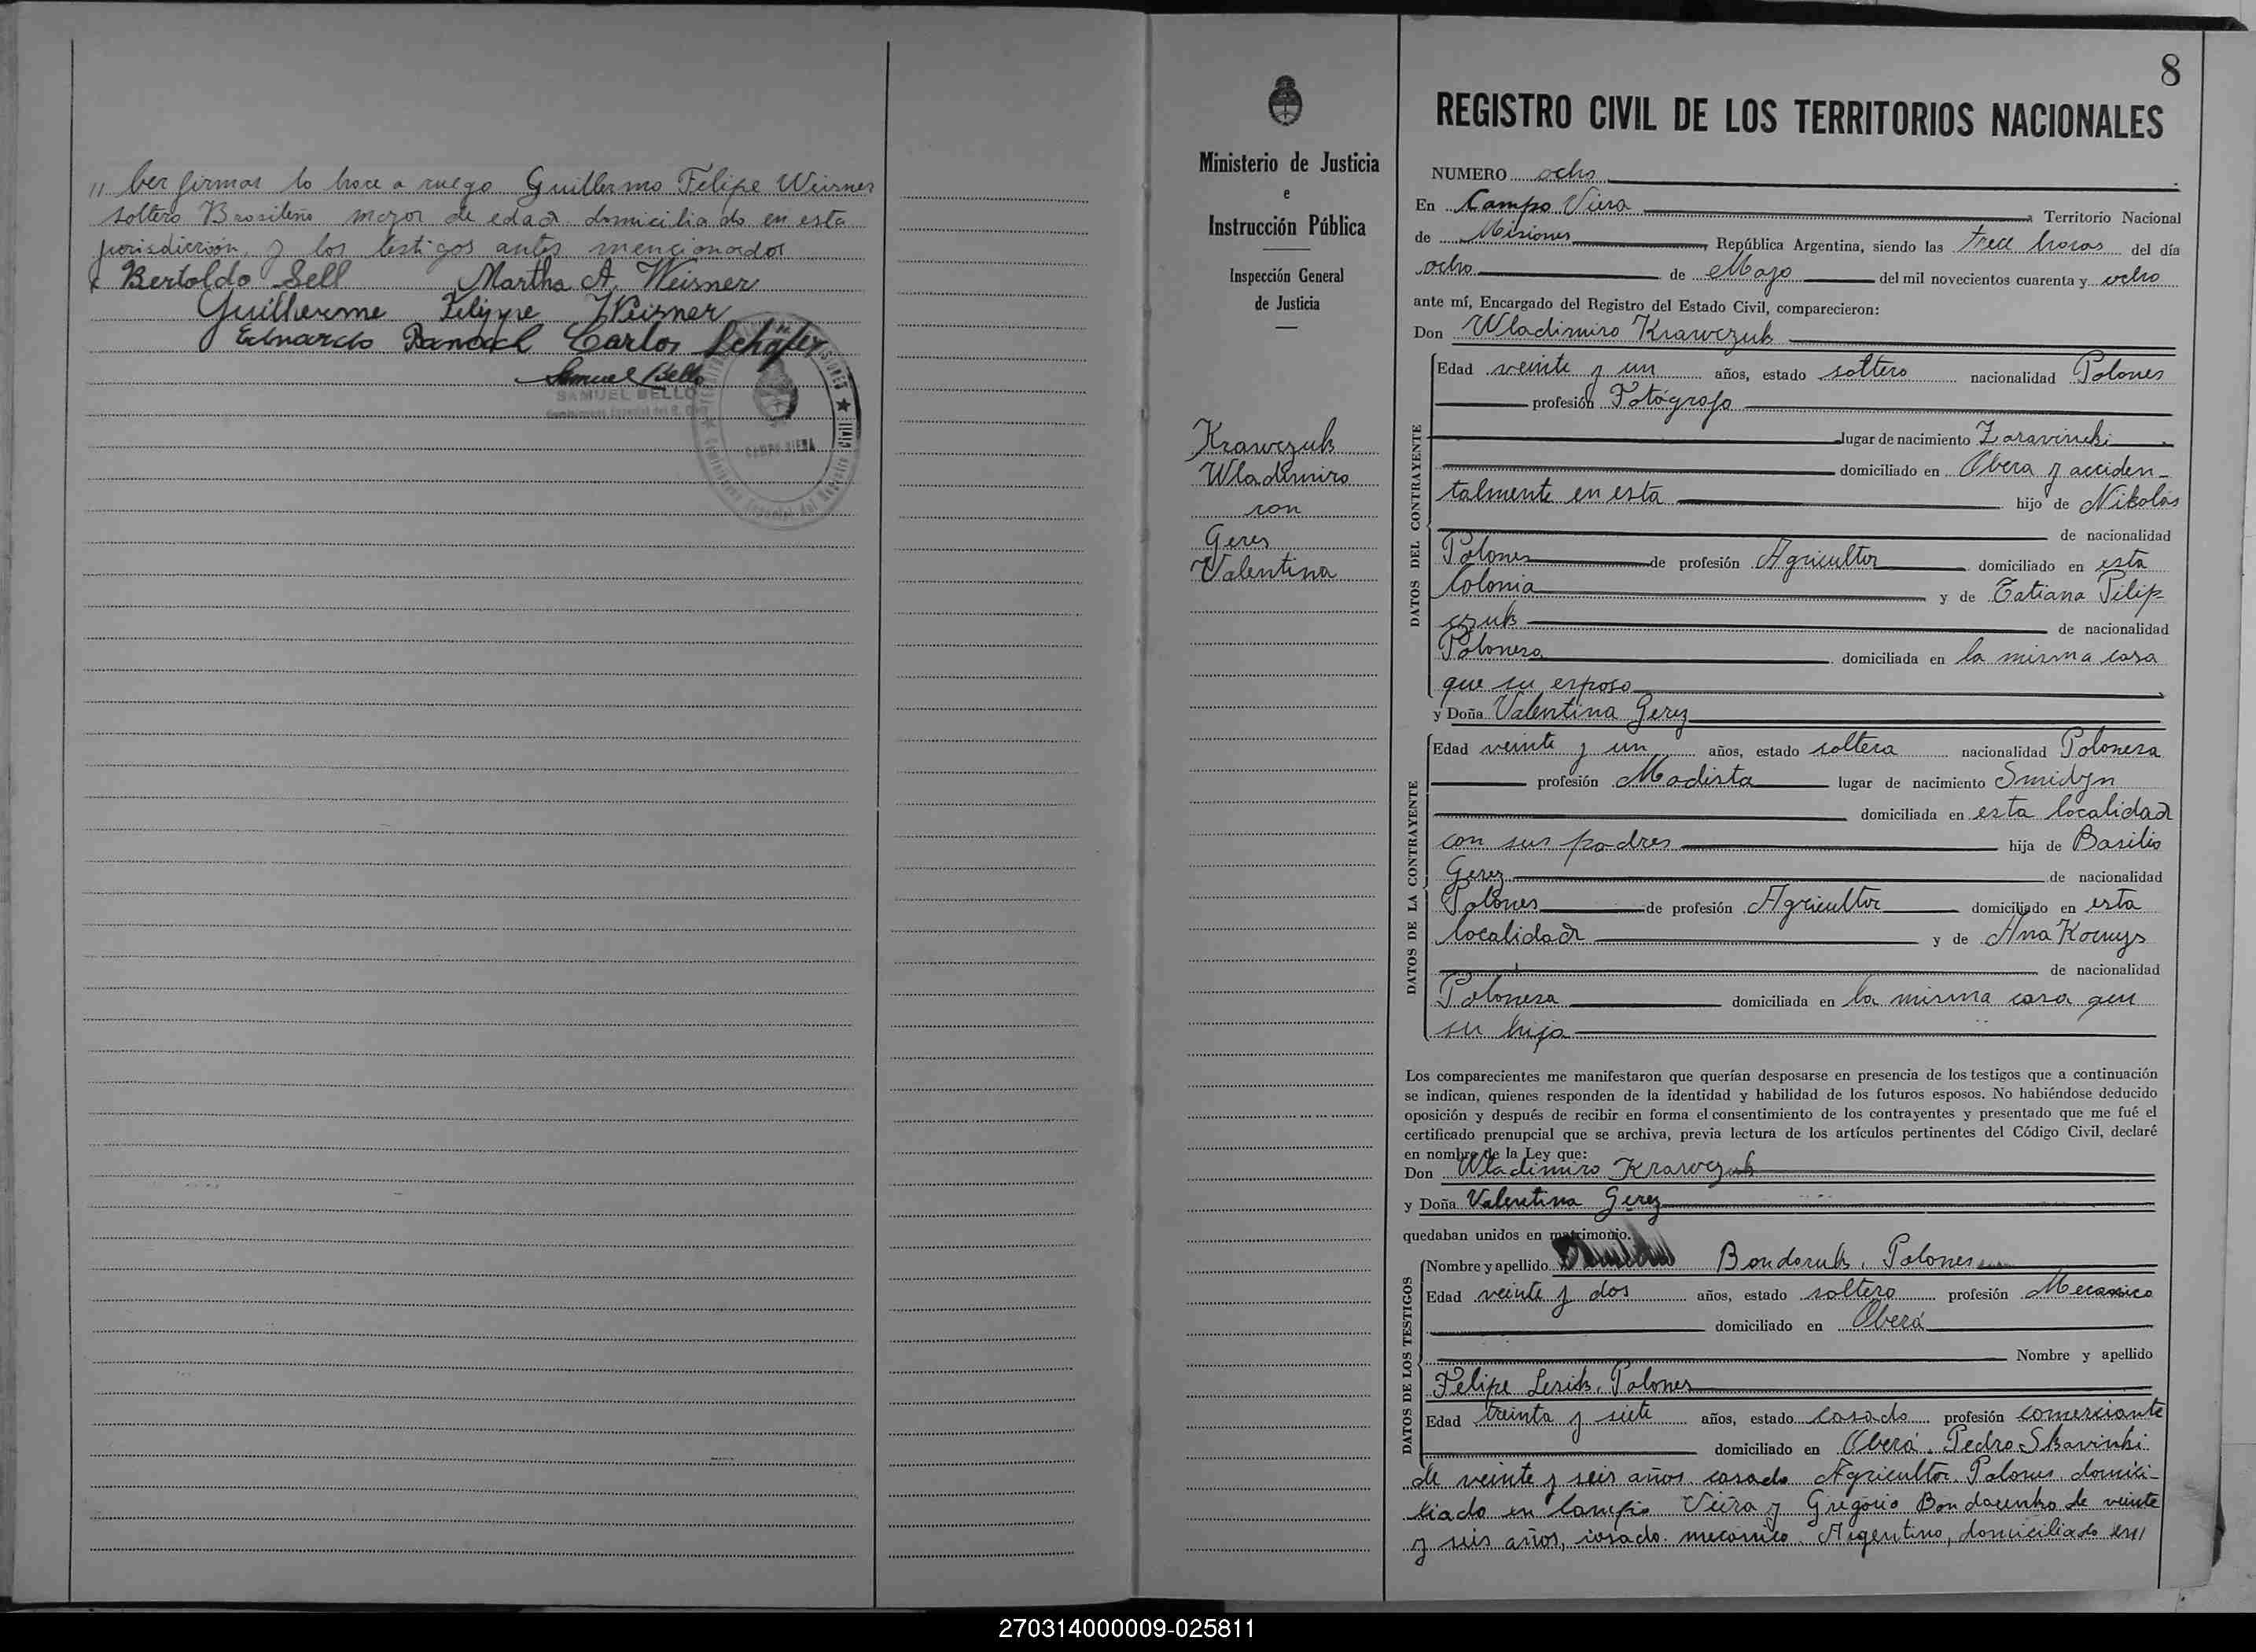 " ber firmar lo hace a ruego Guillermo Felipe Weisner
soltero Brasileño mayor de edad domiciliado en esta
jurisdicción y los testigos antes mencionados
Bertoldo Sell Martha A. Weisner
Guilherme Felippe Weisner
Eduardo Carlos Schäfer
Samuel Bello
SAMUEL BELLO
CAMPO VIERA
Krawczuk
Wladimiro
con
Gerez
Valentina
Ministerio de Justicia
e
Instrucción Pública
Inspección General
de Justicia
8
REGISTRO CIVIL DE LOS TERRITORIOS NACIONALES
NUMERO ocho
En Campo Viera Territorio Nacional
de Misiones República Argentina, siendo las trece horas del día
ocho de Mayo del mil novecientos cuarenta y ocho
ante mí, Encargado del Registro del Estado Civil, comparecieron:
Don Wladimiro Krawczuk
DATOS DEL CONTRAYENTE
Edad veinte y un años, estado soltero nacionalidad Polones
profesión Fotógrafo
lugar de nacimiento Zaravinski
domiciliado en Obera y acciden-
talmente en esta hijo de Nikolas
de nacionalidad
Polones de profesión Agricultor domiciliado en esta
Colonia y de Tatiana Pilip-
czuk de nacionalidad
Polonesa domiciliada en la misma casa
que su esposo
y Doña Valentina Gerez
DATOS DE LA CONTRAYENTE
Edad veinte y un años, estado soltera nacionalidad Polonesa
profesión Modista lugar de nacimiento Smidyn
domiciliada en esta localidad
con sus padres hija de Basilio
Gerez de nacionalidad
Polones de profesión Agricultor domiciliado en esta
localidad y de Ana
de nacionalidad
Polonesa domiciliada en la misma casa que
su hija
Los comparecientes me manifestaron que querían desposarse en presencia de los testigos que a continuación
se indican, quienes responden de la identidad y habilidad de los futuros esposos. No habiéndose deducido
oposición y después de recibir en forma el consentimiento de los contrayentes y presentado que me fué el
certificado prenupcial que se archiva, previa lectura de los artículos pertinentes del Código Civil, declaré
en nombre de la Ley que:
Don Wladimiro Krawczuk
y Doña Valentina Gerez
quedaban unidos en matrimonio.
DATOS DE LOS TESTIGOS
Nombre y apellido Bondaruk, Polones
Edad veinte y dos años, estado soltero profesión Mecanico
domiciliado en Oberá
Nombre y apellido
Felipe Lesik, Polones
Edad treinta y siete años, estado casado profesión comerciante
domiciliado en Oberá. Pedro Skavinski
de veinte y seis años casado Agricultor Polones domici-
liado en Campo Viera y Gregorio Bondarenko de veinte
y seis años, casado mecanico Argentino, domiciliado en//
270314000009-025811